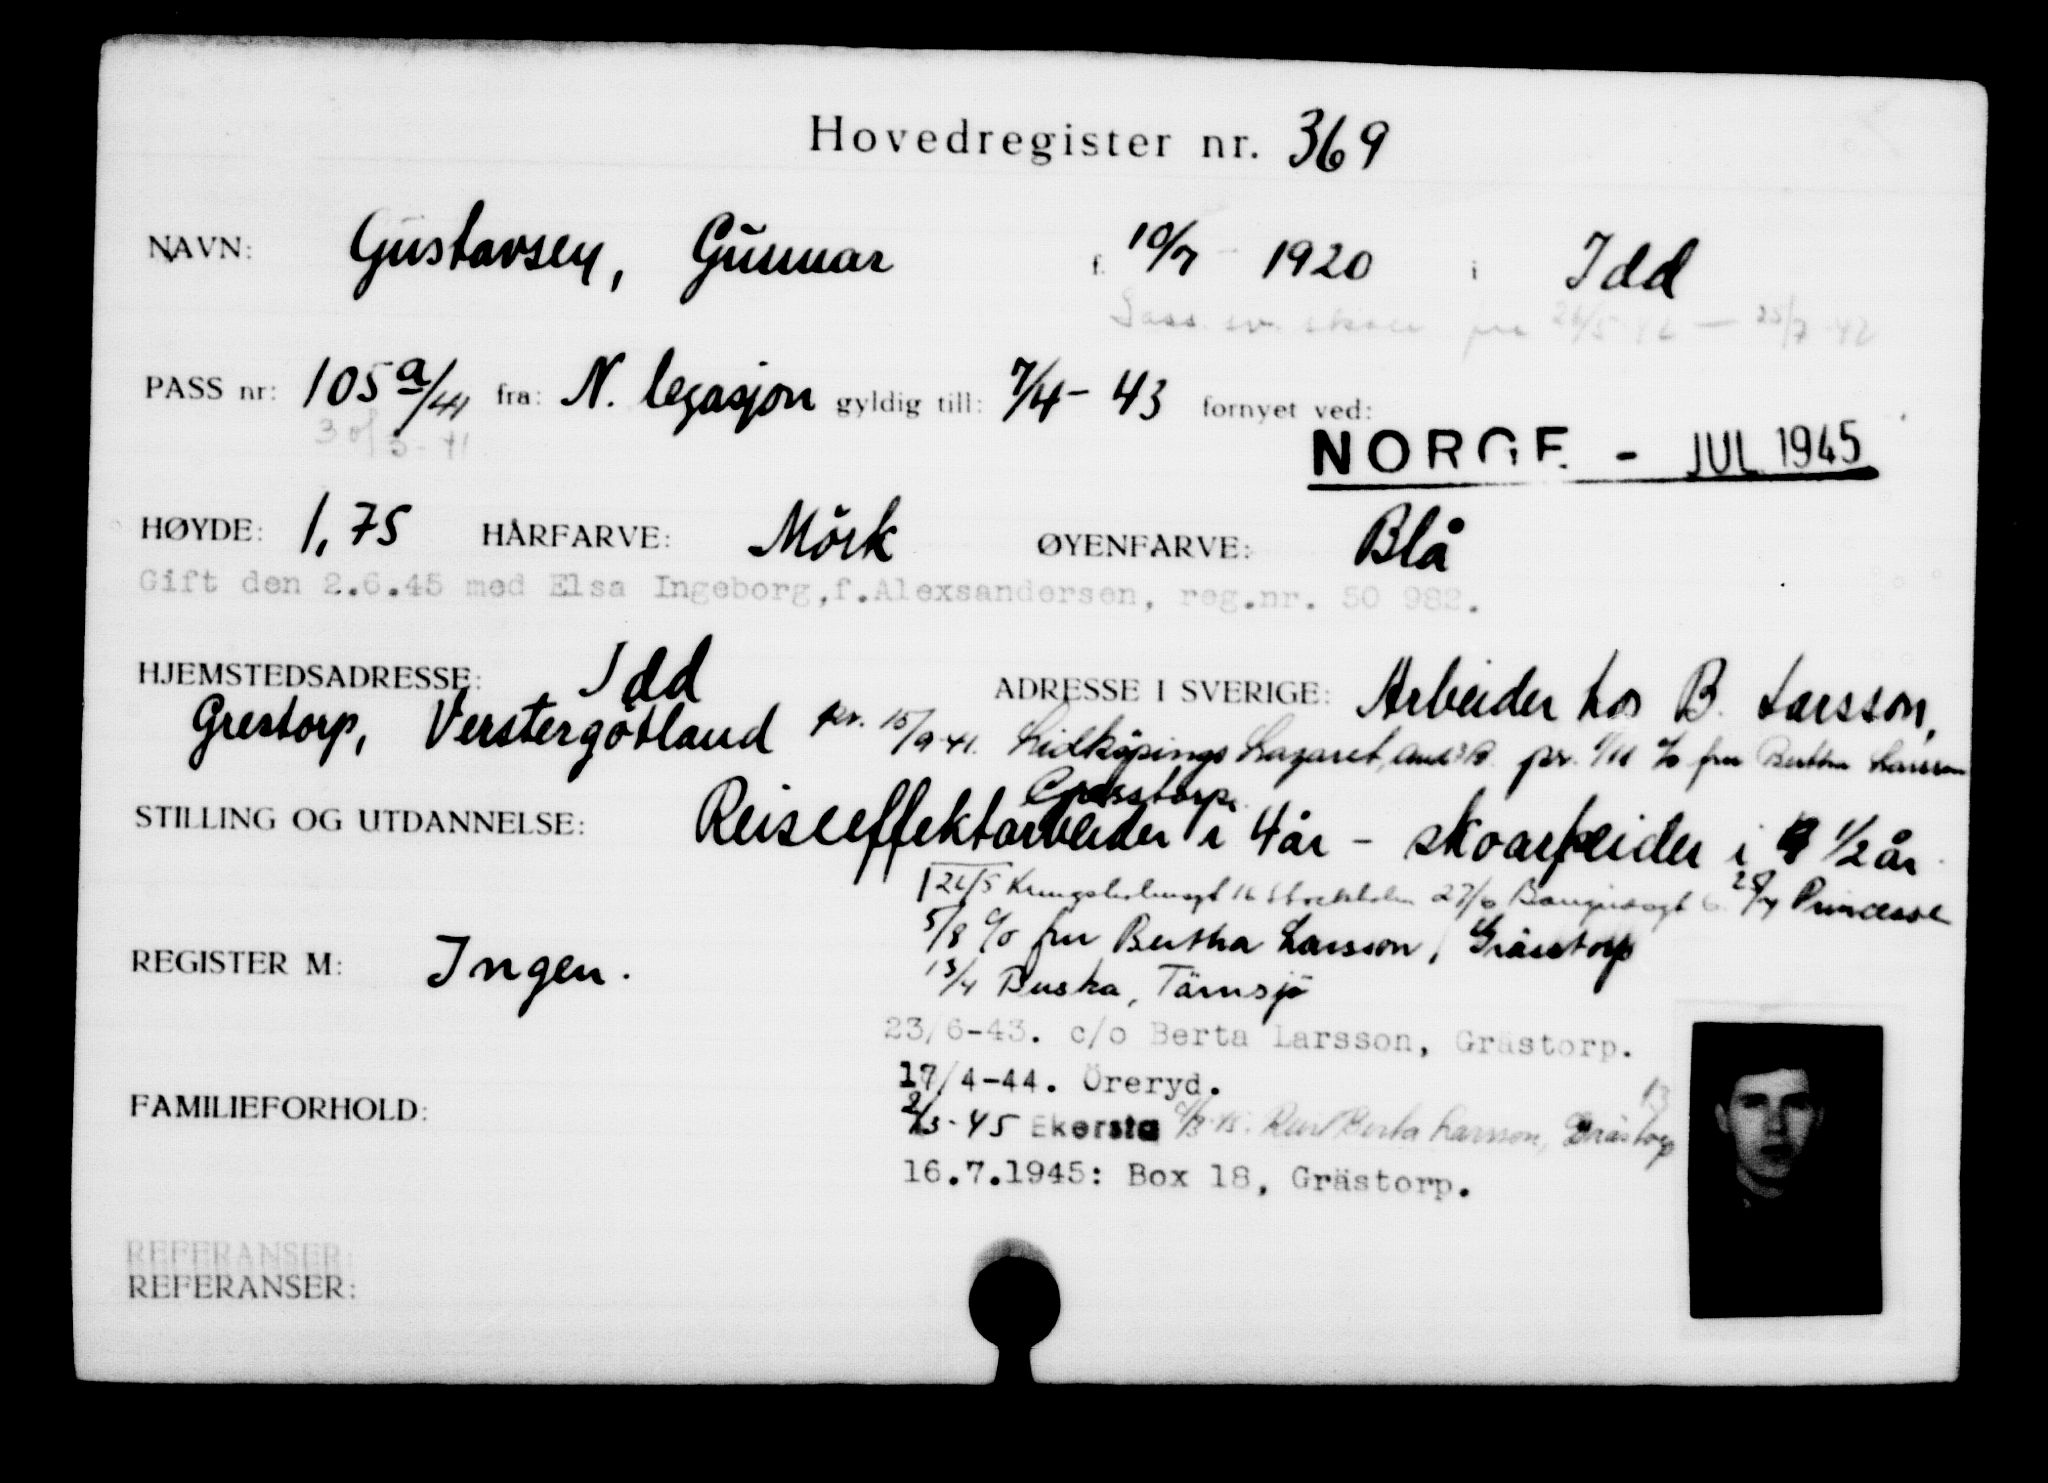 Hovedregister nr. 369
NAVN: Gustavsen, Gunnar f. 10/7 1920 i Idd
26/5 42 — 25/7-42
PASS nr: 105 a/41 fra: N. legasjon gyldig till: 7/4-43 fornyet ved:
NORGE - JUL 1945
HØYDE: 1,75 HÅRFARVE: Mörk ØYENFARVE: Blå
Gift den 2.6.45 med Elsa Ingeborg,f.Alexsandersen, reg.nr. 50 982.
HJEMSTEDSADRESSE: Idd ADRESSE I SVERIGE: Arbeider hos B. Larsson,
Grestorp, Verstergötland pr. 15/9-41. Lidköpings Lazaret, pr. 1/11 c/o fru Bertha Larsson
Grästorp.
STILLING OG UTDANNELSE: Reiseeffektarbeider i 4 år - skoarbeider i 1/2 år
5/8 c/o fru Bertha Larsson, Grästorp
REGISTER M: Ingen.
13/4 Buska, Tärnsjö
23/6-43. c/o Berta Larsson, Grästorp.
17/4-44. Öreryd.
FAMILIEFORHOLD:
2/3-45 Ekersta Berta Larsson, Grästorp
16.7.1945: Box 18, Grästorp.
REFERANSER:
REFERANSER: